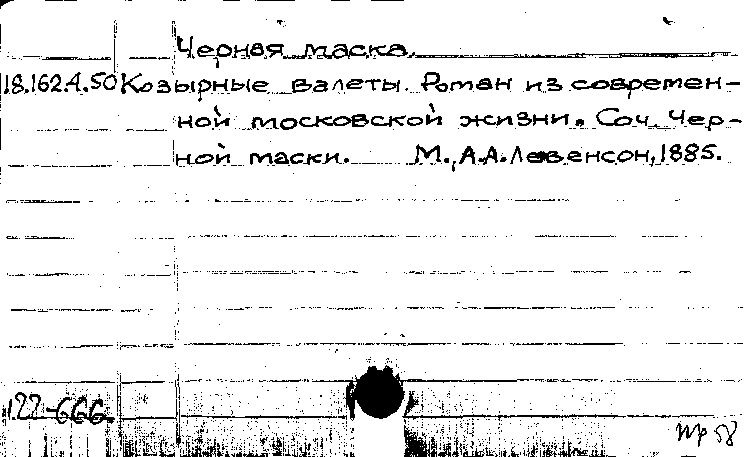 Черная маска.
18.162.4.50 Козырные валеты. Роман из современ-
ной московской жизни. Соч. Чер-
ной маски. М., А.А. Левенсон, 1885.
122-666
пр 58